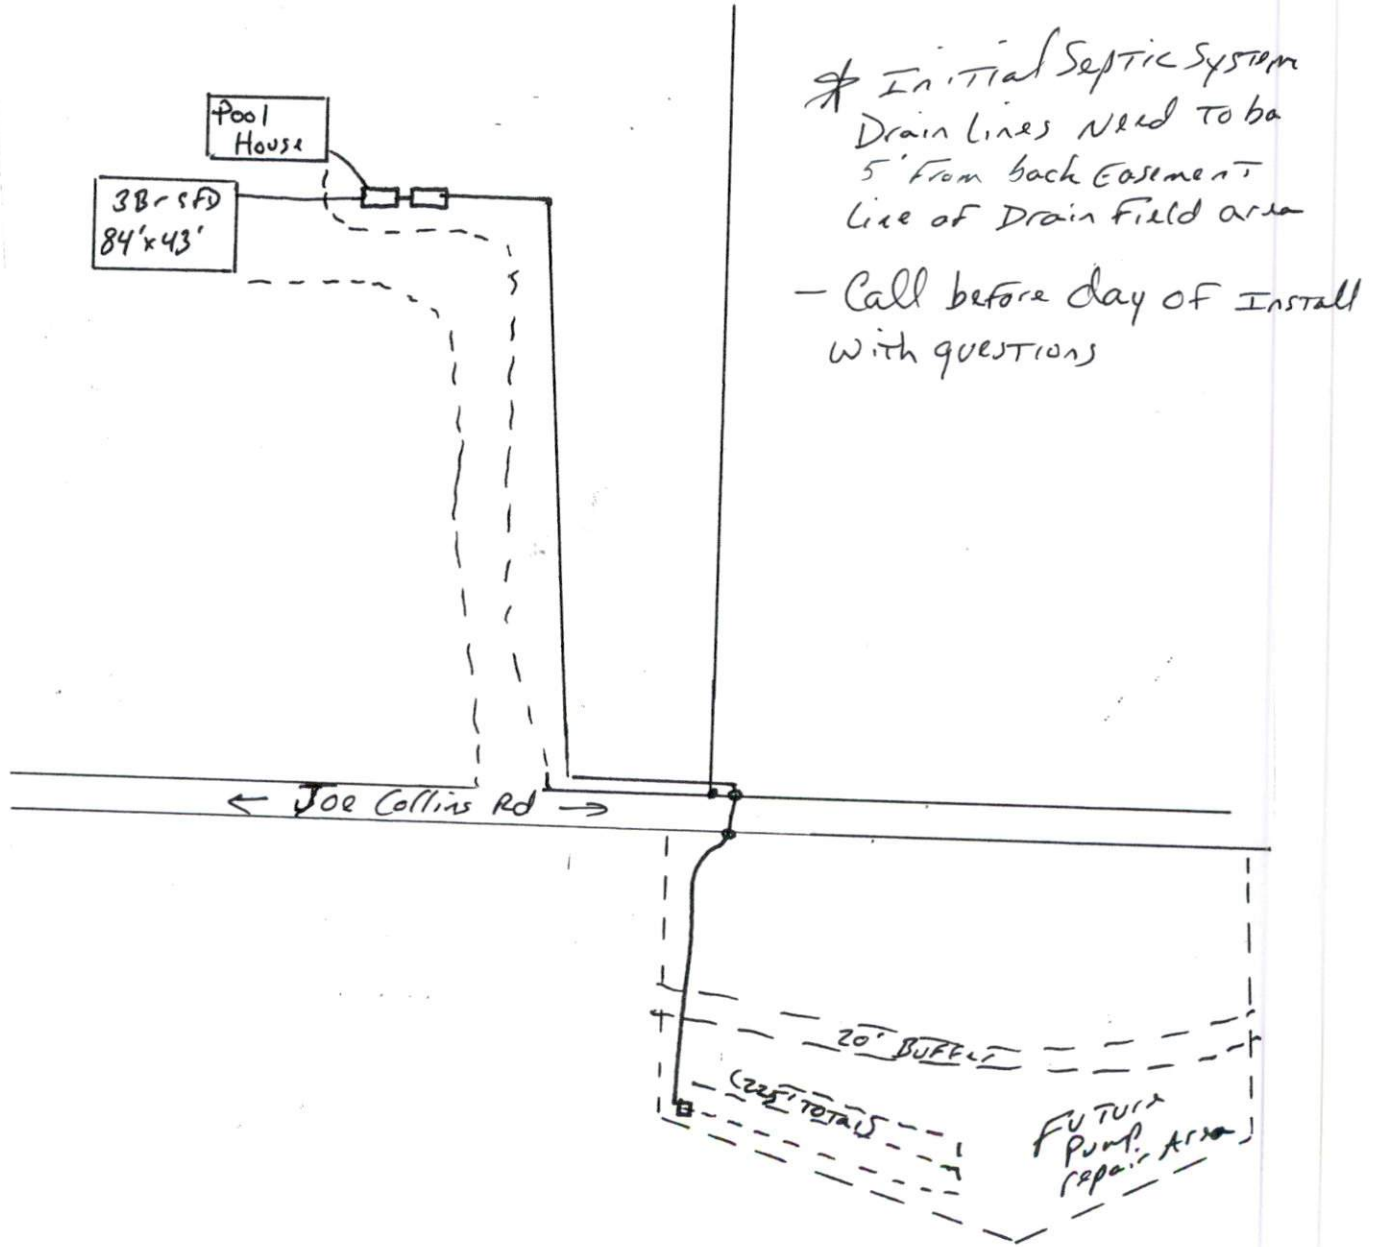 Pool
House
3Br SFD
84'x43'
* Initial Septic System
Drain Lines Need To be
5' From back Easement
Line of Drain Field area
- Call before day of Install
with questions
← Joe Collins Rd →
20' Buffer
(225' Total)
Future
Pump
repair Area